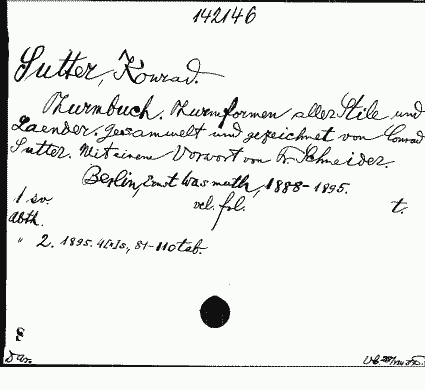 142146
Sutter, Konrad.
Thurmbuch. Thurmformen aller Stile und
Laender. Gesammelt und gezeichnet von Conrad
Sutter. Mit einem Vorwort von Fr. Schneider.
Berlin, Ernst Wasmuth, 1888-1895.
1 sv. vel. fol. t.
Abth.
" 2. 1895. 81-110 tab.